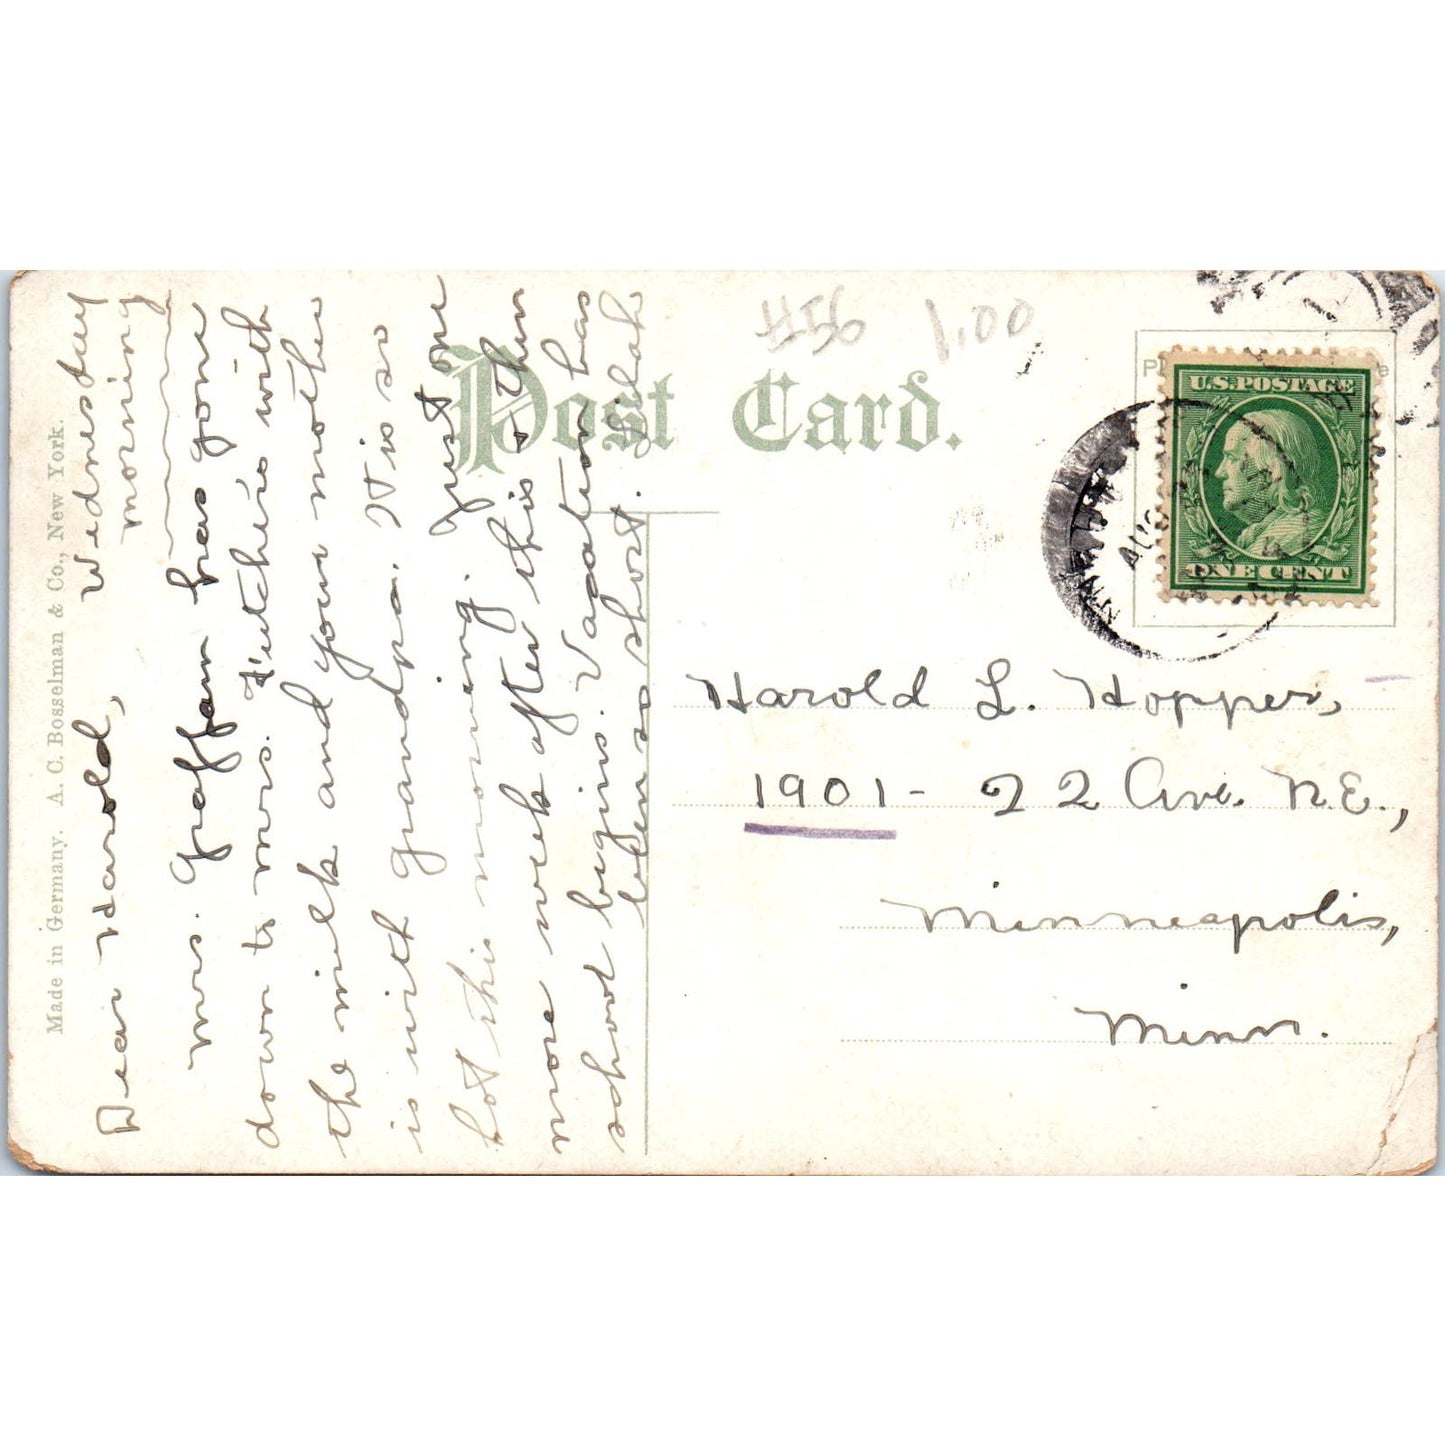 Made in Germany. A. C. Bosselman & Co., New York.
Wednesday
morning
Dear Harold,
Mrs. Graffam has gone
down to Mrs. Futcher's with
the milk and your mother
is with grandpa. It is so
hot this morning. Just one
more week after this & then
school begins. Vacation has
been so short. Lilah
Post Card.
#56 1.00
U.S. POSTAGE
ONE CENT
AUG
Harold L. Hopper,
1901 - 22 Ave. N.E.,
Minneapolis,
Minn.